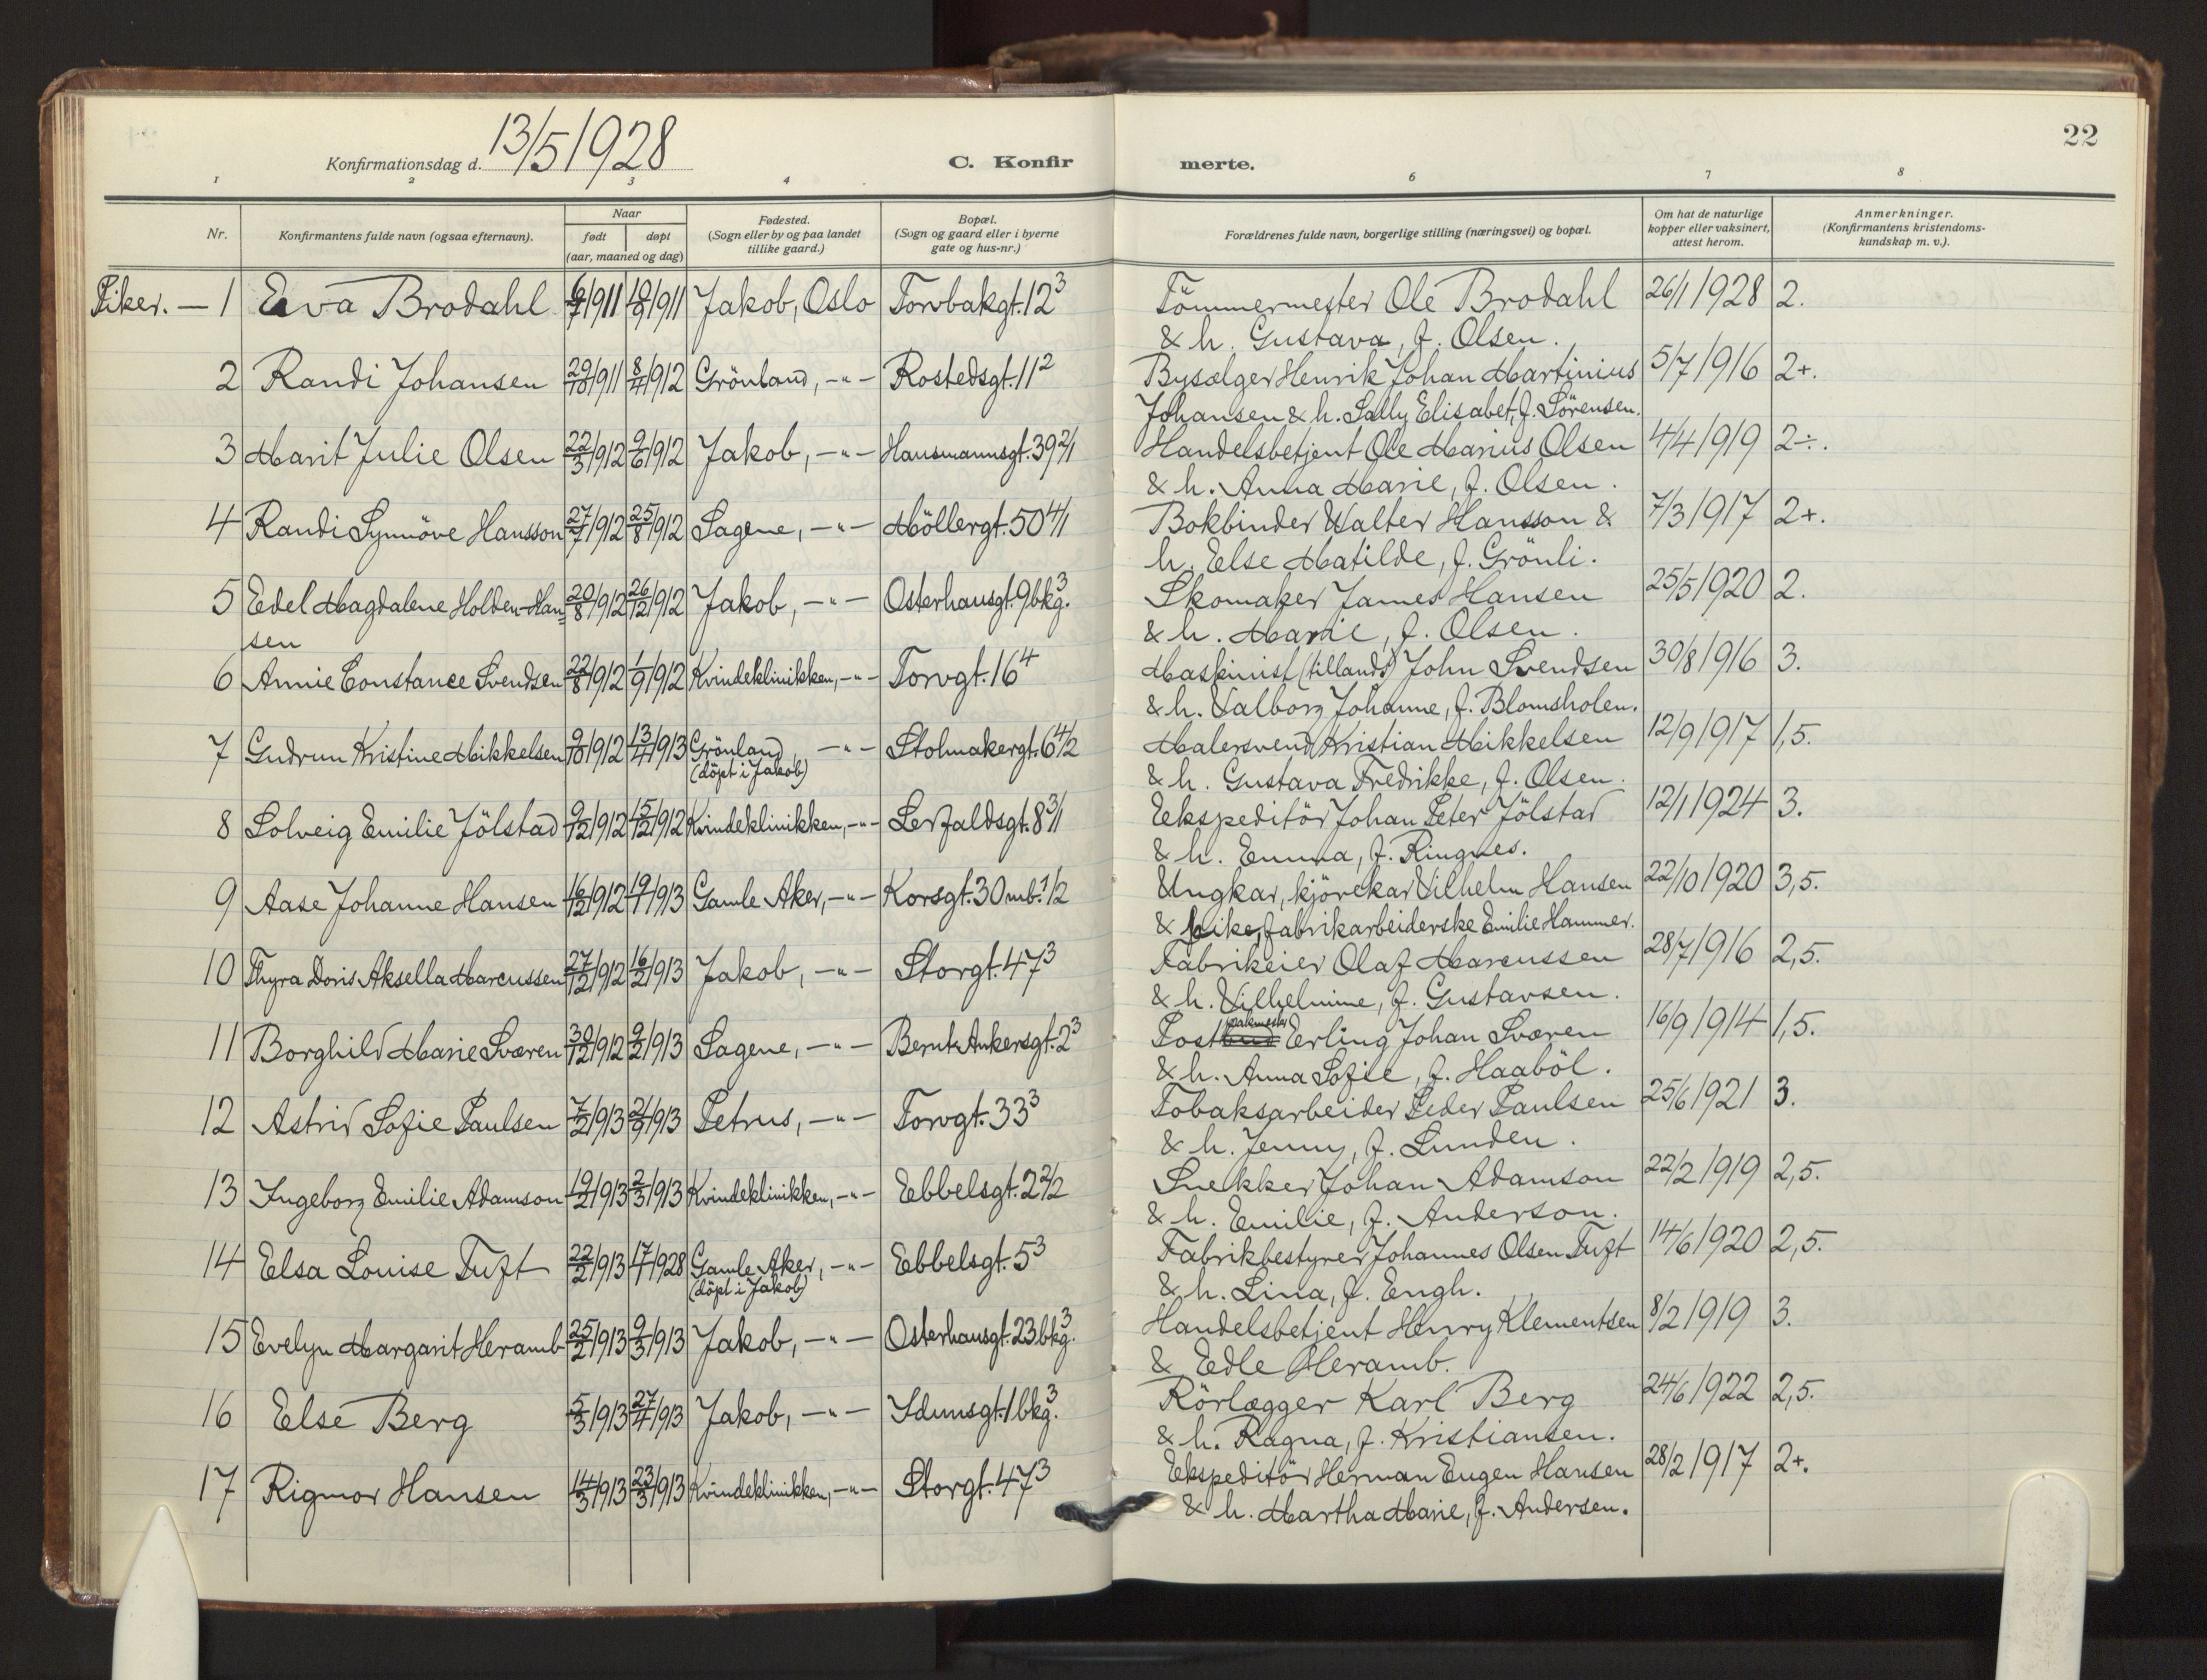 22
Konfirmationsdag d. 13/5 1928
C. Konfirmerte.
1 2 3 4 6 7 8
Nr.
Konfirmantens fulde navn (ogsaa efternavn).
Naar
født døpt
(aar, maaned og dag)
Fødested.
(Sogn eller by og paa landet
tillike gaard.)
Bopæl.
(Sogn og gaard eller i byerne
gate og hus-nr.)
Forældrenes fulde navn, borgerlige stilling (næringsvei) og bopæl.
Om hat de naturlige
kopper eller vaksinert,
attest herom.
Anmerkninger.
(Konfirmantens kristendoms-
kundskap m. v.).
Piker. — 1 Eva Brodahl 1911 1911 Jakob, Oslo Torvbakgt. 12³ Tömmermester Ole Brodahl 26/1 1928 2.
& h. Gustava, f. Olsen.
2 Randi Johansen 29/10 1911 8/4 1912 Grönland, -"- Rostedsgt. 11² Bysælger Henrik Johan Martinius 5/7 1916 2+.
Johansen & h. Sally Elisabet, f. Sörensen.
3 Marit Julie Olsen 22/3 1912 9/6 1912 Jakob, -"- Hausmannsgt. 39 2/1 Handelsbetjent Ole Marius Olsen 4/4 1919 2÷.
& h. Anna Marie, f. Olsen.
4 Randi Synnöve Hansson 27/7 1912 25/8 1912 Sagene, -"- Möllergt. 50 4/1 Bokbinder Walter Hansson & 7/3 1917 2+.
h. Else Matilde, f. Grönli.
5 Edel Magdalene Holden-Han= 20/8 1912 26/12 1912 Jakob, -"- Osterhausgt. 9 bkg.³ Skomaker James Hansen 25/5 1920 2.
sen & h. Marie, f. Olsen.
6 Annie Constance Svendsen 22/8 1912 1/9 1912 Kvindeklinikken, -"- Torvgt. 16⁴ Maskinist (tillands) John Svendsen 30/8 1916 3.
& h. Valborg Johanne, f. Blomsholen.
7 Gudrun Kristine Mikkelsen 9/10 1912 13/4 1913 Grönland, -"- Stolmakergt. 6 4/2 Malersvend Kristian Mikkelsen 12/9 1917 1,5.
(döpt i Jakob) & h. Gustava Fredrikke, f. Olsen.
8 Solveig Emilie Jölstad 9/12 1912 15/12 1912 Kvindeklinikken, -"- Leffaldsgt. 8 3/1 Ekspeditör Johan Peter Jölstad 12/1 1924 3.
& h. Emma, f. Ringnes.
9 Aase Johanne Hansen 16/12 1912 19/1 1913 Gamle Aker, -"- Korsgt. 30 mb. 1/2 Ungkar, kjörekar Vilhelm Hansen 22/10 1920 3,5.
& pike, fabrikarbeiderske Emilie Hammer.
10 Thyra Doris Aksella Marcussen 27/12 1912 16/2 1913 Jakob, -"- Storgt. 47³ Fabrikeier Olaf Marcussen 28/7 1916 2,5.
& h. Vilhelmine, f. Gustavsen.
11 Borghild Marie Sværen 30/12 1912 9/2 1913 Sagene, -"- Bernt Ankersgt. 2³ Postpakmester Erling Johan Sværen 16/9 1914 1,5.
& h. Anna Sofie, f. Haaböl.
12 Astrid Sofie Paulsen 7/2 1913 1913 Petrus, -"- Torvgt. 33³ Tobaksarbeider Peder Paulsen 25/6 1921 3.
& h. Jenny, f. Lunden.
13 Ingeborg Emilie Adamson 19/2 1913 2/3 1913 Kvindeklinikken, -"- Ebbelsgt. 2 2/2 Snekker Johan Adamson 22/2 1919 2,5.
& h. Emilie, f. Anderson.
14 Elsa Louise Tuft 22/2 1913 17/1 1928 Gamle Aker, -"- Ebbelsgt. 5³ Fabrikbestyrer Johannes Olsen Tuft 14/6 1920 2,5.
(döpt i Jakob) & h. Lina, f. Engh.
15 Evelyn Margarit Heramb 25/2 1913 9/3 1913 Jakob, -"- Osterhausgt. 23 bkg.³ Handelsbetjent Henry Klementsen 8/2 1919 3.
& Edle Heramb.
16 Else Berg 5/3 1913 27/4 1913 Jakob, -"- Idunsgt. 1 bkg.³ Rörlægger Karl Berg 24/6 1922 2,5.
& h. Ragna, f. Kristiansen.
17 Rigmor Hansen 14/3 1913 23/3 1913 Kvindeklinikken, -"- Storgt. 47³ Ekspeditör Herman Eugen Hansen 28/2 1917 2+.
& h. Martha Marie, f. Andersen.